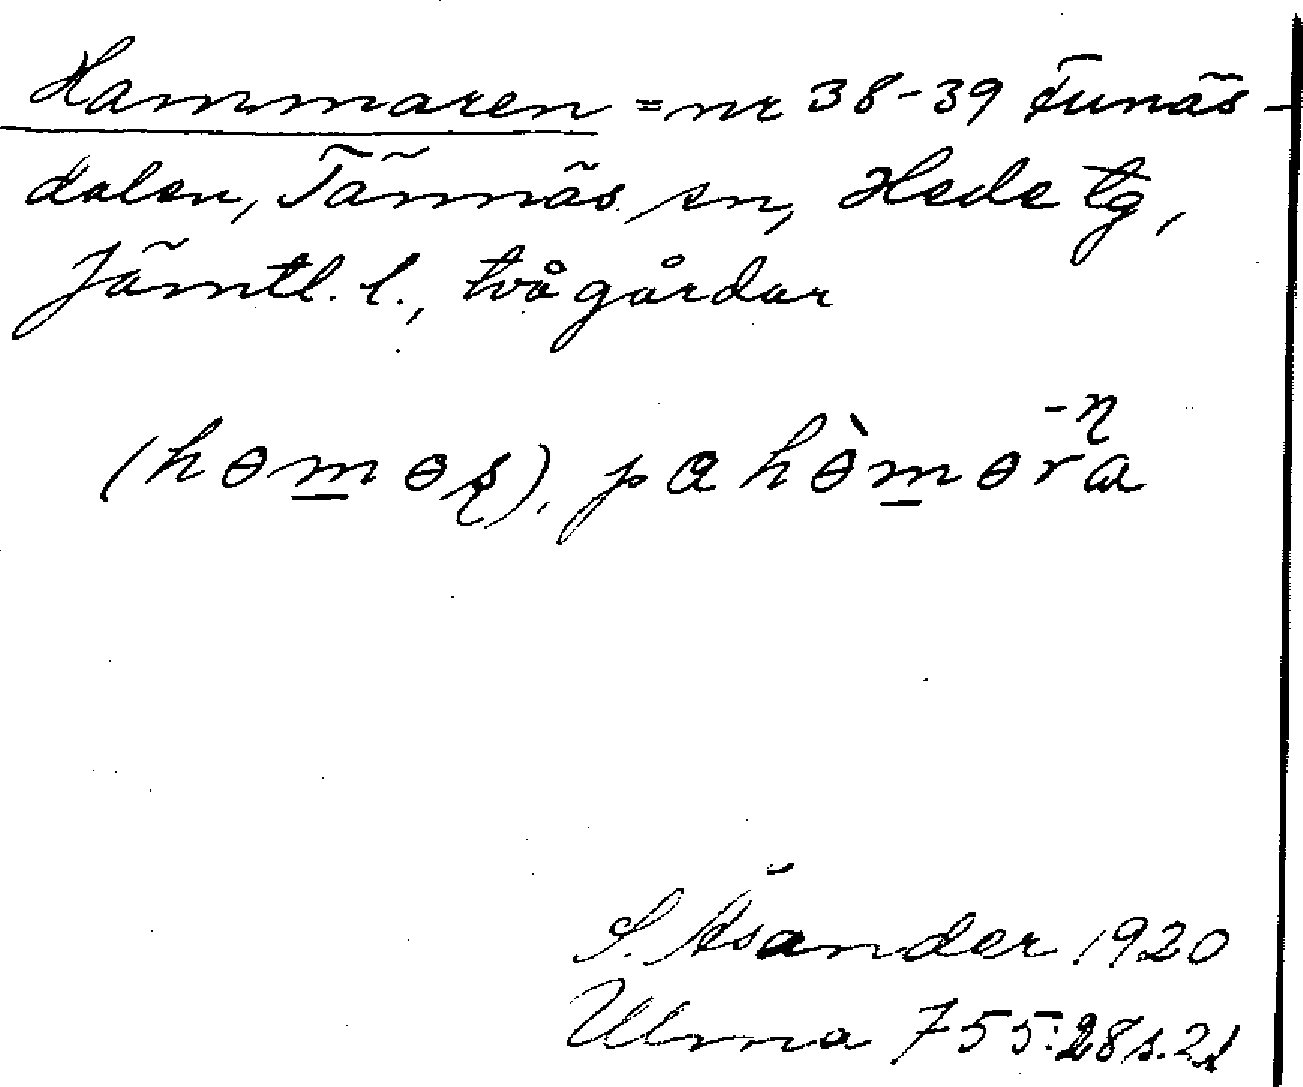 Hammaren = nr 38-39 Funäs-
dalen, Tännäs sn, Hede tg,
Jämtl. l., två gårdar
-η
(hɵm̲ɵṣ), pɑ hɵ̀m̲ɵra
S. Åsander 1920
Ulma 755:28 s. 21